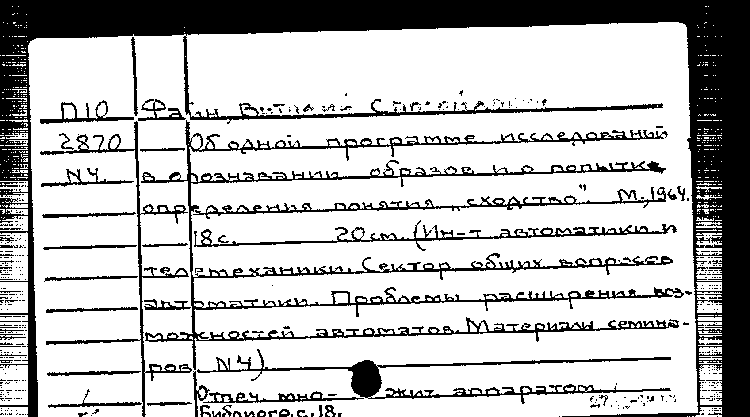 П10 Файн, Виталий
2870 Об одной программе исследований
N4. в опознавании образов и о попытке
определения понятия „сходство". М., 1964.
18с. 20см. (Ин-т автоматики и
телемеханики. Сектор общих вопросов
автоматики. Проблемы расширения воз-
можностей автоматов. Материалы семина-
ров. N4).
Отпеч. мно- жит. аппаратом.
Библиогр. с. 18.